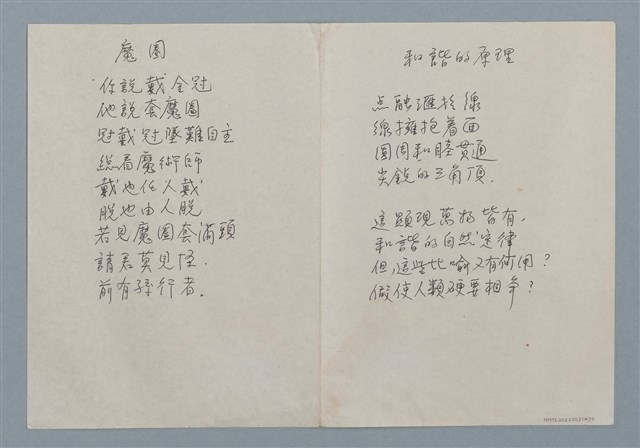 魔圈
你說戴金冠
他說套魔圈
冠戴冠墜難自主
總看魔術師
戴也任人戴
脫也由人脫
若見魔圈套滿頭
請君莫見怪．
前有孫行者．
和諧的原理
点融滙於線
線擁抱着面
圓周和睦貫通
尖銳的三角頂．
這顯現萬物皆有，
和諧的自然定律
但，這些比喻又有何用？
假使人類硬要相爭？